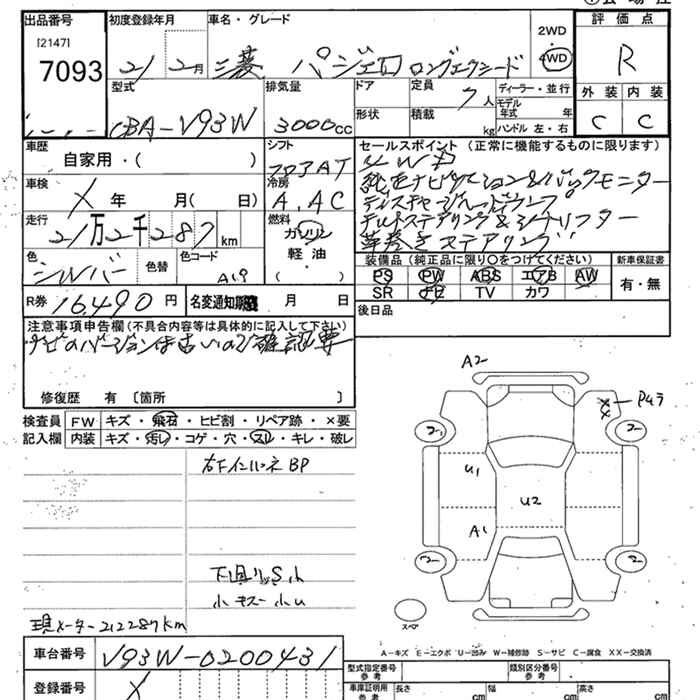 出品番号
初度登録年月
車名・グレード
評価点
[2147]
7093
21 2月
三菱 パジェロ ロングエクシード
2WD
4WD
R
外装 内装
C C
型式
CBA-V93W
排気量
3000cc
ドア
形状
定員
7人
積載
kg
ディーラー・並行
モデル年式 年
ハンドル 左・右
車歴
自家用・( )
シフト
フロアAT
冷房
A.AC
車検
X 年 月( 日)
走行
21万2千287km
燃料
ガソリン
軽油・
( )
色
シルバー
色替
色コード
A19
R券 16,490 円
名変通知期限 月 日
セールスポイント (正常に機能するものに限ります)
4WD
純正ナビゲーション&バックモニター
ディスチャージヘッドランプ
チルトステアリング&シートリフター
革巻きステアリング
装備品 (純正品に限り〇をつけてください)
新車保証書
PS PW ABS エアB AW
有・無
SR TV カワ
後日品
注意事項申告欄(不具合内容等は具体的に記入して下さい)
ナビのバージョンは古いので確認要
修復歴 有 〔箇所 〕
検査員
記入欄
FW キズ・飛石・ヒビ割・リペア跡・×要
内装 キズ・汚レ・コゲ・穴・スレ・キレ・破レ
BP
下廻りS小
現メーター212287km
A2
U1
U2
A1
スペア
A-キズ E-エクボ U-凹み W-補修跡 S-サビ C-腐食 XX-交換済
車台番号 V93W-0200431
登録番号 X
型式指定番号 参考
類別区分番号 参考
車庫証明用 参考
長さ cm
幅 cm
高さ cm